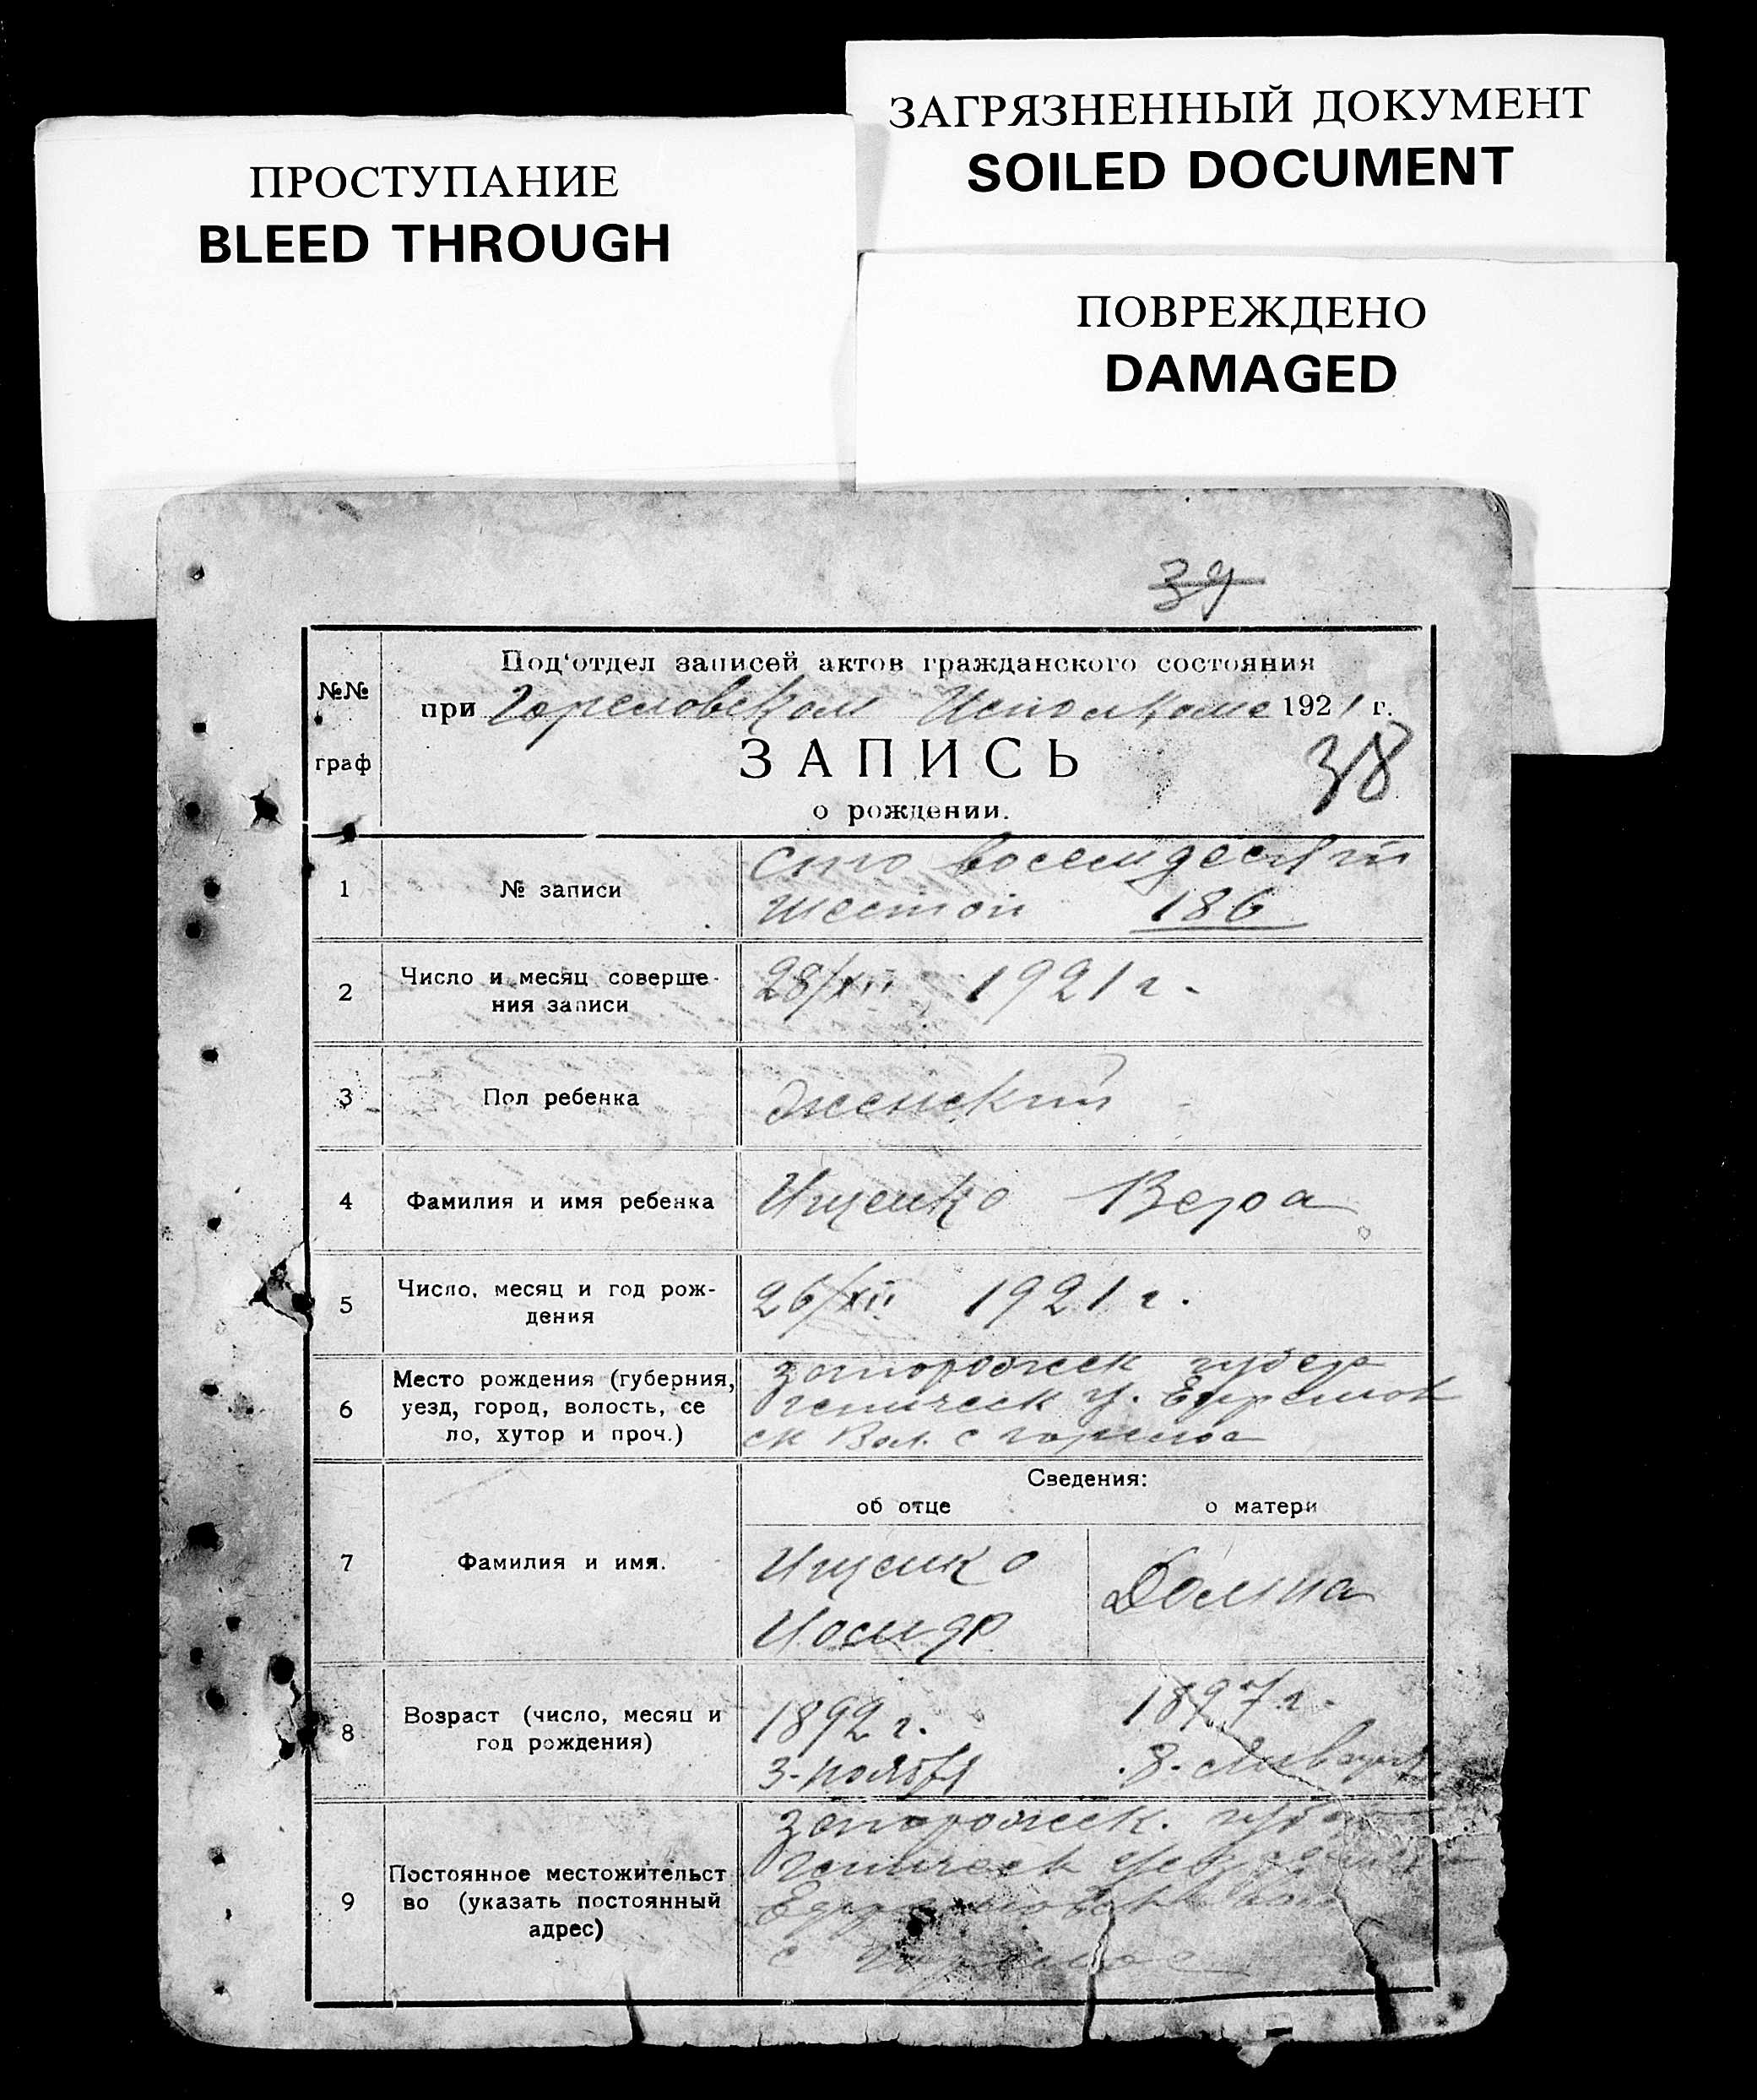 ЗАГРЯЗНЕННЫЙ ДОКУМЕНТ
SOILED DOCUMENT
ПРОСТУПАНИЕ
BLEED THROUGH
ПОВРЕЖДЕНО
DAMAGED
39
№№
граф
Под'отдел записей актов гражданского состояния
при Гореловском Исполкоме 1921 г.
ЗАПИСЬ
38
о рождении.
1
№ записи
сто восемдесятий
шестой 186
2
Число и месяц соверше-
ния записи
28/XII 1921 г.
3
Пол ребенка
женский
4
Фамилия и имя ребенка
Ищенко Вера
5
Число, месяц и год рож-
дения
26/XII 1921 г.
6
Место рождения (губерния,
уезд, город, волость, се
ло, хутор и проч.)
запорожск губер
геническ у. Ефремов
ск Вол. с горелое
Сведения:
об отце
о матери
7
Фамилия и имя.
Ищенко
Домна
8
Возраст (число, месяц и
год рождения)
1892 г.
3-ноября
1897 г.
8-января
9
Постоянное местожительст
во (указать постоянный
адрес)
запорожск. губ
геническ
Ефремовск
с горелое